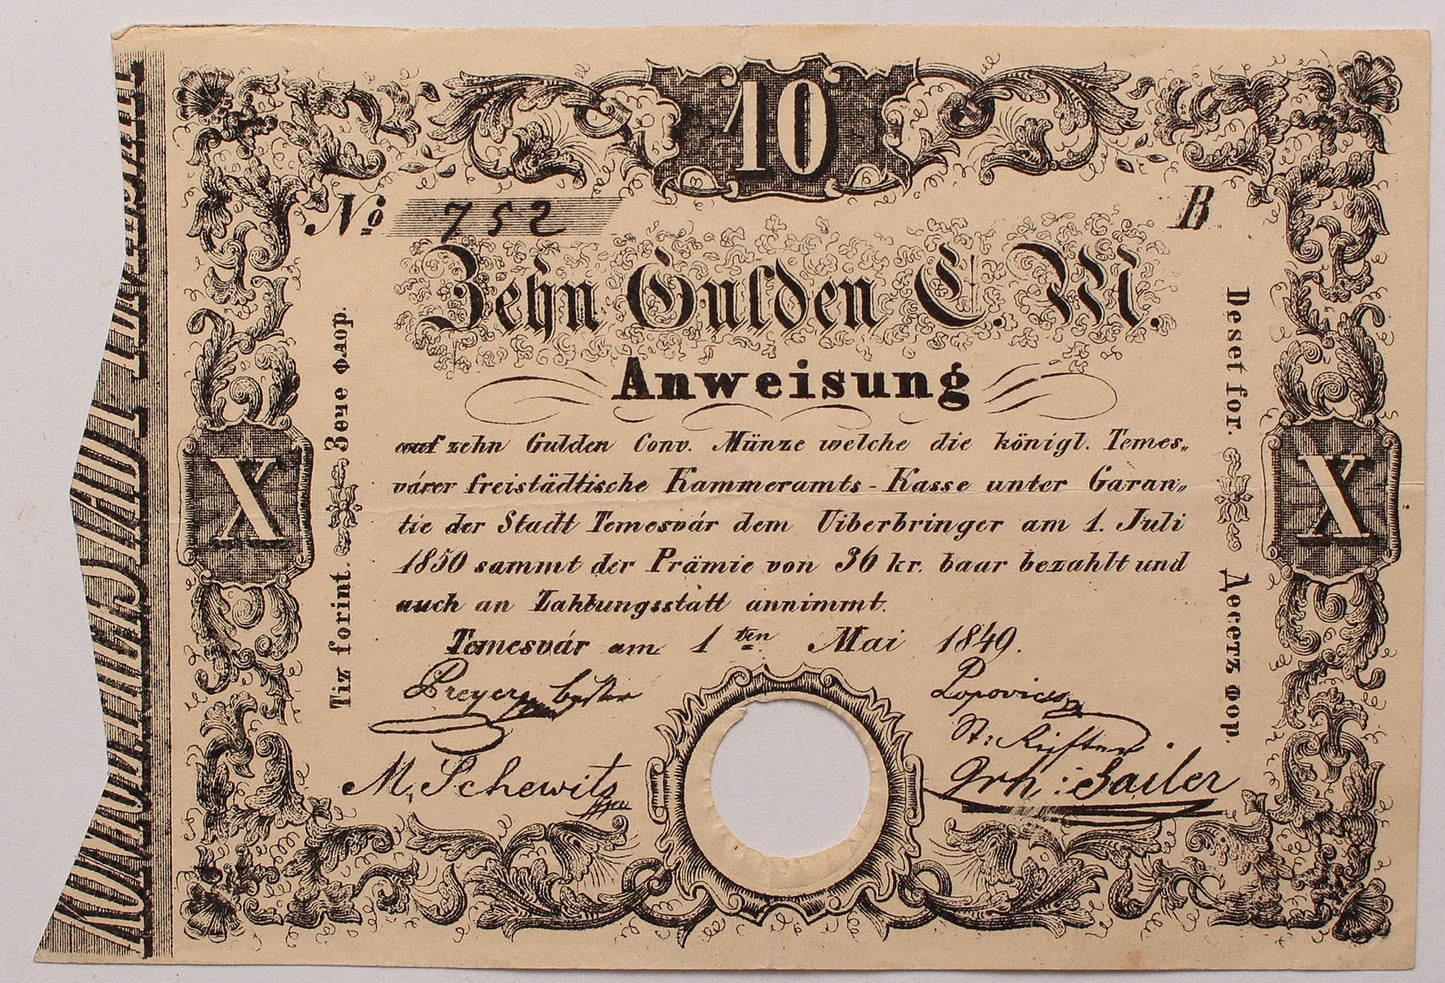 10
No 752
B.
Zehn Gulden C. M.
Anweisung
auf zehn Gulden Conv. Münze welche die königl. Temes„
várer freistädtische Kammeramts-Kasse unter Garan„
tie der Stadt Temesvár dem Uiberbringer am 1. Juli
1850 sammt der Prämie von 36 kr. baar bezahlt und
auch an Zahlungsstatt annimmt.
Temesvár am 1ten Mai 1849.
Preyer
Popovics
M. Schewitz
Joh: Sailer
X
X
Tiz forint. Зече флор.
Deset for. Десетъ фор.